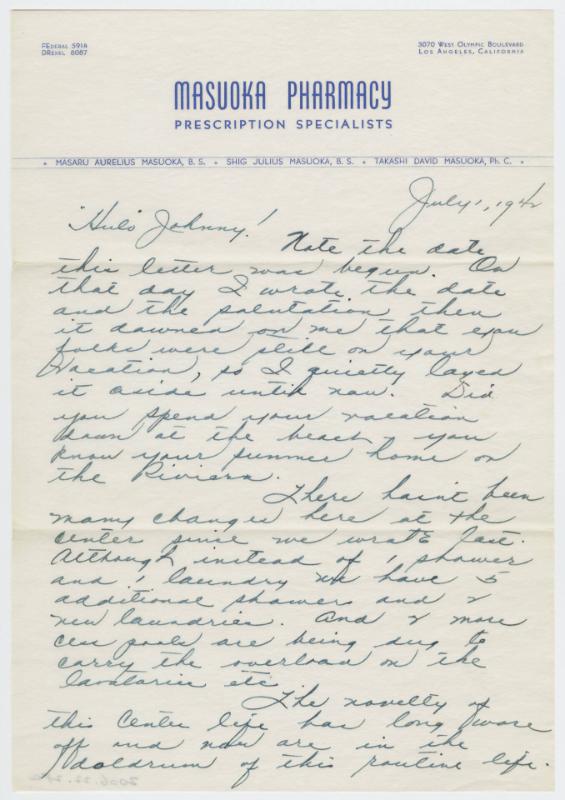 FEDERAL 5918
DREXEL 8087
3070 WEST OLYMPIC BOULEVARD
LOS ANGELES, CALIFORNIA
MASUOKA PHARMACY
PRESCRIPTION SPECIALISTS
• MASARU AURELIUS MASUOKA, B. S. • SHIG JULIUS MASUOKA, B. S. • TAKASHI DAVID MASUOKA, PH. C. •
July 1, 1942
"Hulo" Johnny!
Note the date
this letter was begun. On
that day I wrote the date
and the salutation, then
it dawned on me that you
folks were still on your
vacation, so I quietly layed
it aside until now. Did
you spend your vacation
down at the beach, you
know your summer home on
the Riviera.
There hasn't been
many changes here at the
center since we wrote last.
Although instead of 1 shower
and 1 laundry we have 5
additional showers and 2
new laundries. And 2 more
cess pools are being dug to
carry the overload on the
lavatories etc
The novelty of
this Center life has long wore
off and now are in the
doldrum of this routine life.